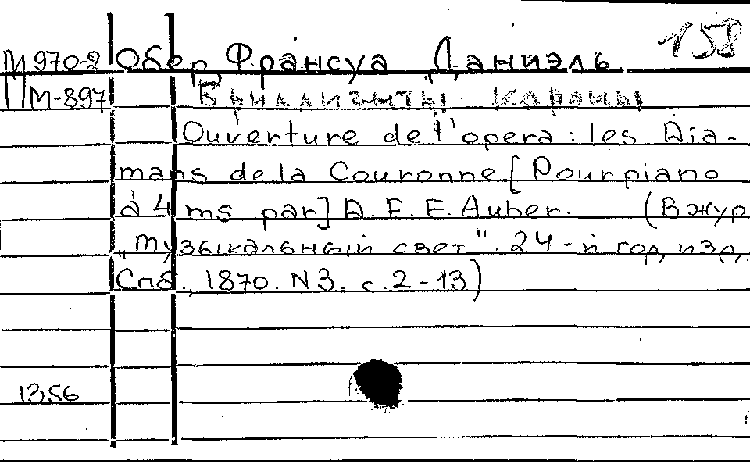 158
М 970-2 Обер, Франсуа Даниэль
М-897 Бриллианты короны
Ouverture de l'opera: les Dia-
mans de la Couronne [Pour piano
à 4 ms par] D. F. E. Auber. (В жур.
"Музыкальный свет". 24-й год изд.
Спб., 1870. N3. с. 2-13)
1356